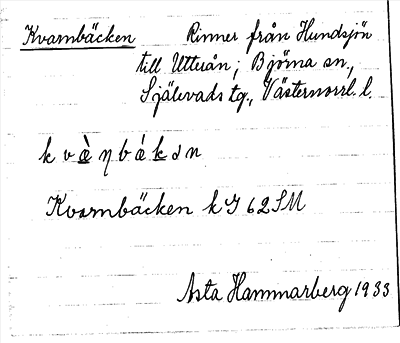 Kvarnbäcken Rinner från Hundsjön
till Utterån; Björna sn.,
Själevads tg., Västernorrl. l.
Kvarnbäcken k J 62 SM
Asta Hammarberg 1933